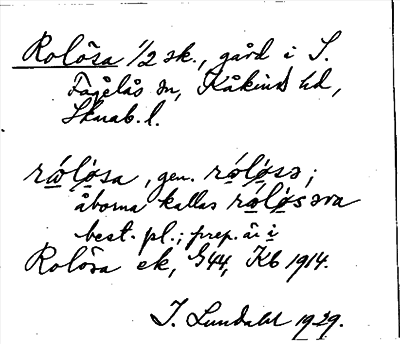 Rolösa 1/2 sk., gård i S.
Fågelås sn, Kåkinds hd,
Skarab. l.
rώlø̀sa, gen. rώlø̀sə;
åborna kallas rώlø̀səva
best. pl.; prep. är i
Rolösa ek, G44, Kb 1914.
I. Lundahl 1929.